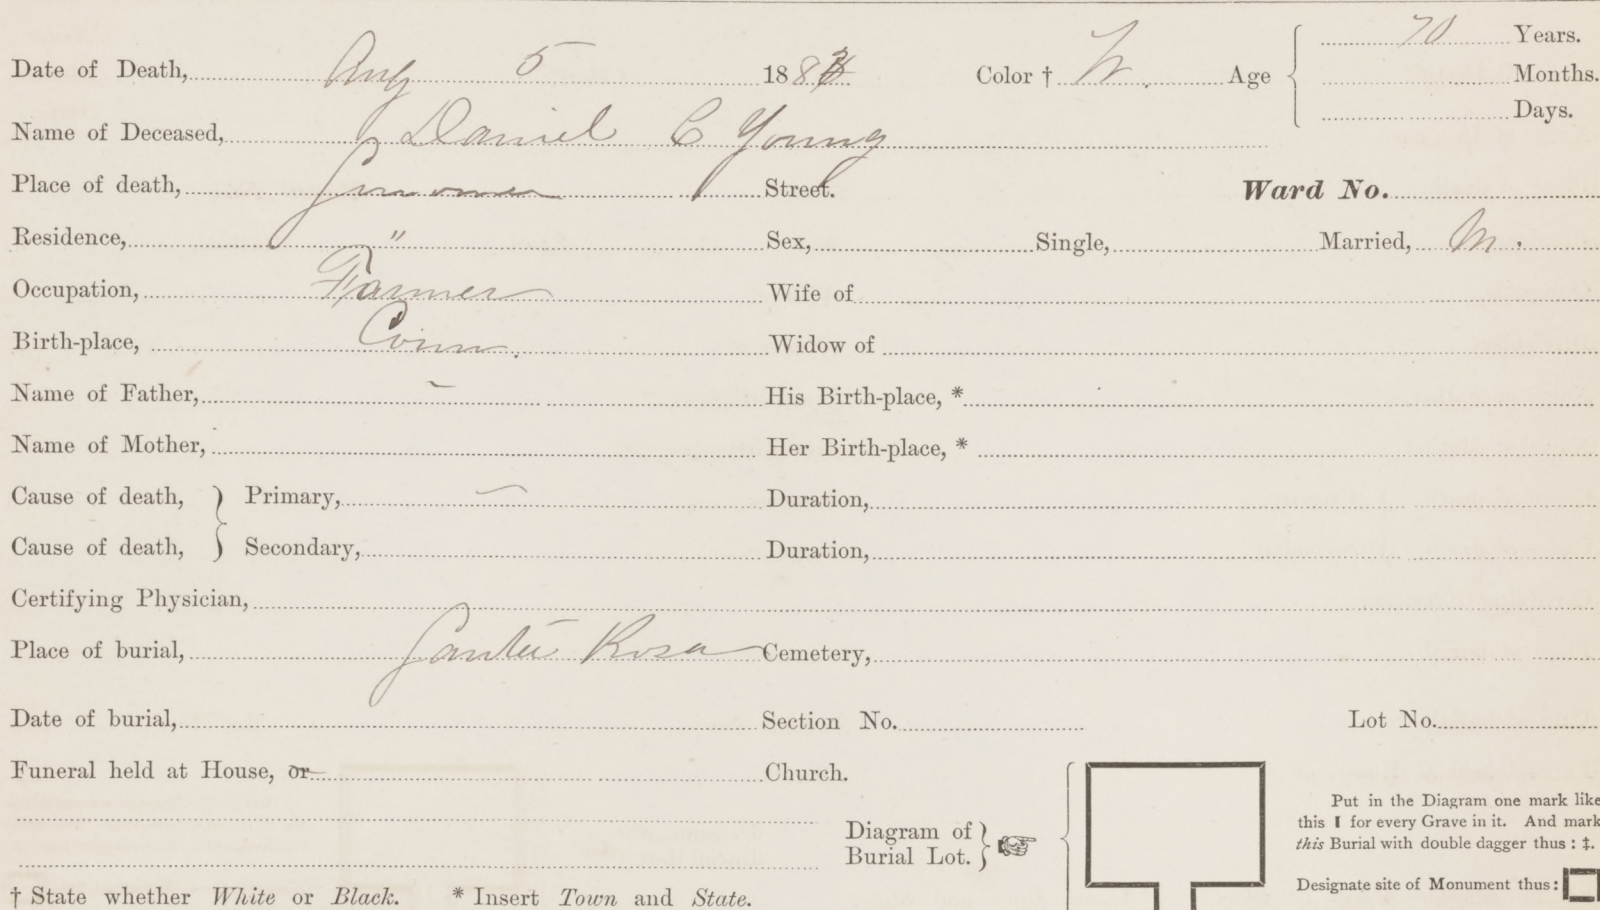 Date of Death, Aug 5 1883 Color † W. Age 70 Years.
Months.
Days.
Name of Deceased, Daniel C Young
Place of death, Street. Ward No.
Residence, " Sex, Single, Married, M.
Occupation, Farmer Wife of
Birth-place, Conn. Widow of
Name of Father, - His Birth-place, *
Name of Mother, Her Birth-place, *
Cause of death, } Primary, - Duration,
Cause of death, } Secondary, Duration,
Certifying Physician,
Place of burial, Santa Rosa Cemetery,
Date of burial, Section No. Lot No.
Funeral held at House, or Church.
Diagram of
Burial Lot. }
Put in the Diagram one mark like
this I for every Grave in it. And mark
this Burial with double dagger thus : ‡.
Designate site of Monument thus:
† State whether White or Black. * Insert Town and State.